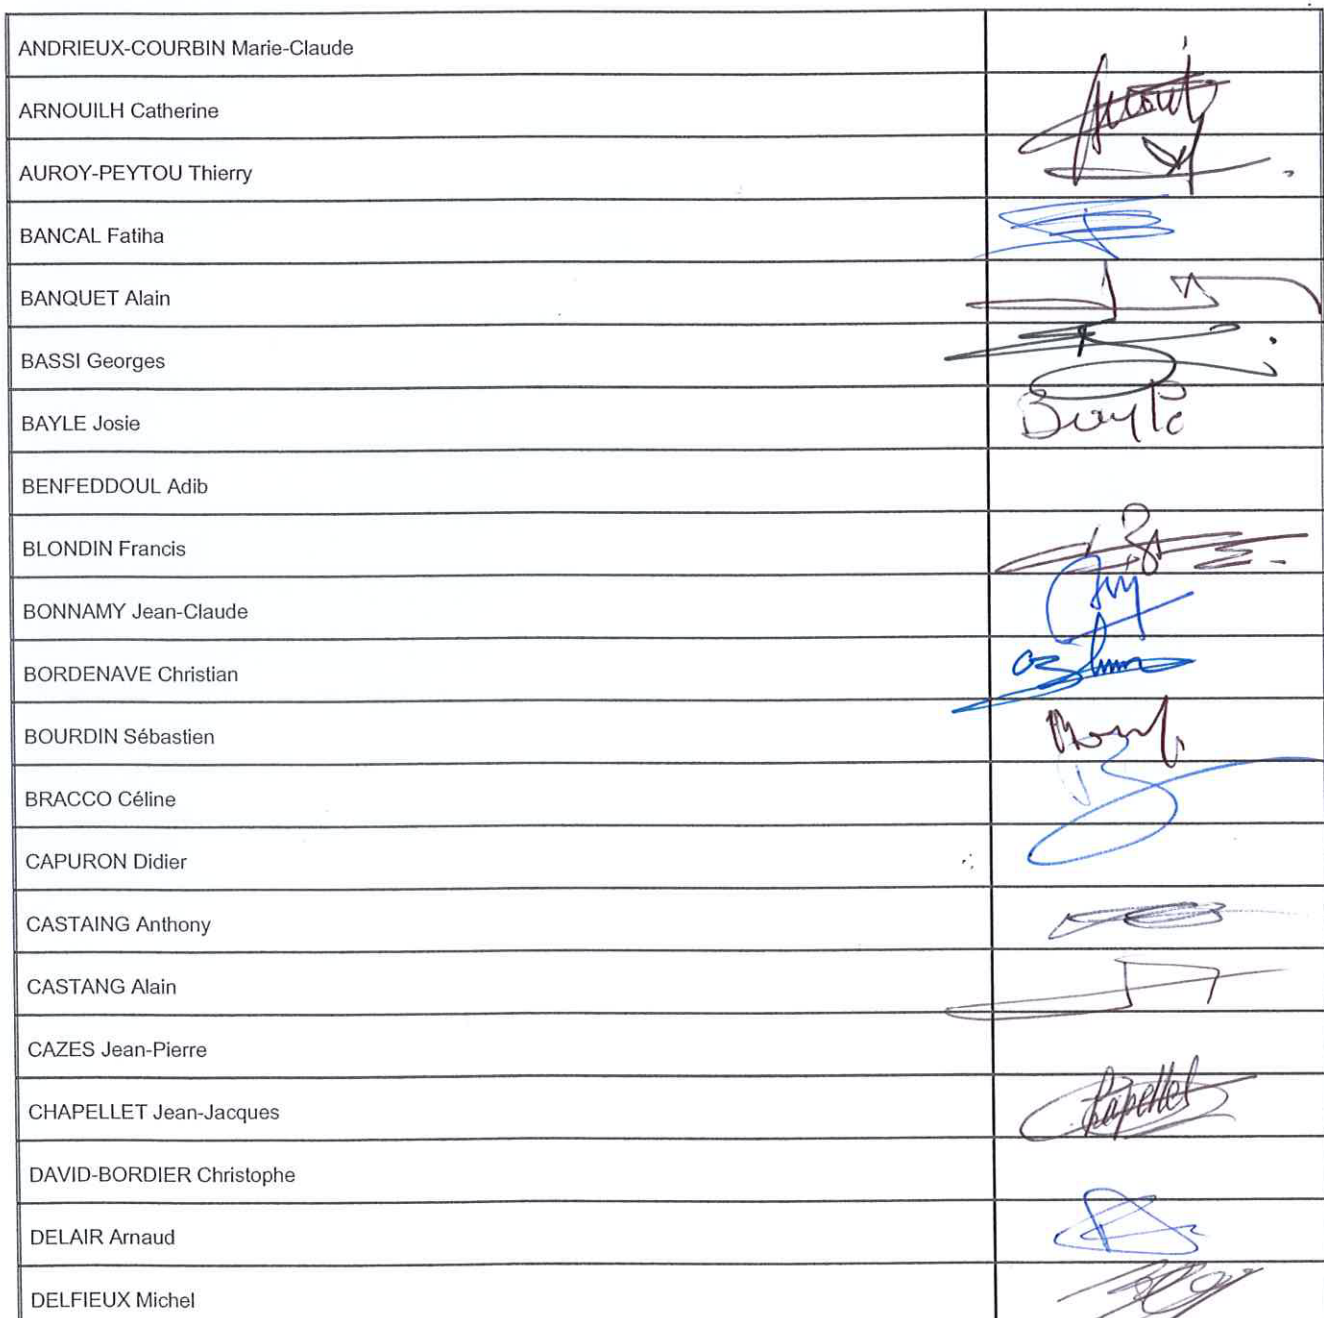 ANDRIEUX-COURBIN Marie-Claude
ARNOUILH Catherine
AUROY-PEYTOU Thierry
BANCAL Fatiha
BANQUET Alain
BASSI Georges
BAYLE Josie Bayle
BENFEDDOUL Adib
BLONDIN Francis
BONNAMY Jean-Claude
BORDENAVE Christian
BOURDIN Sébastien
BRACCO Céline
CAPURON Didier
CASTAING Anthony
CASTANG Alain
CAZES Jean-Pierre
CHAPELLET Jean-Jacques
DAVID-BORDIER Christophe
DELAIR Arnaud
DELFIEUX Michel